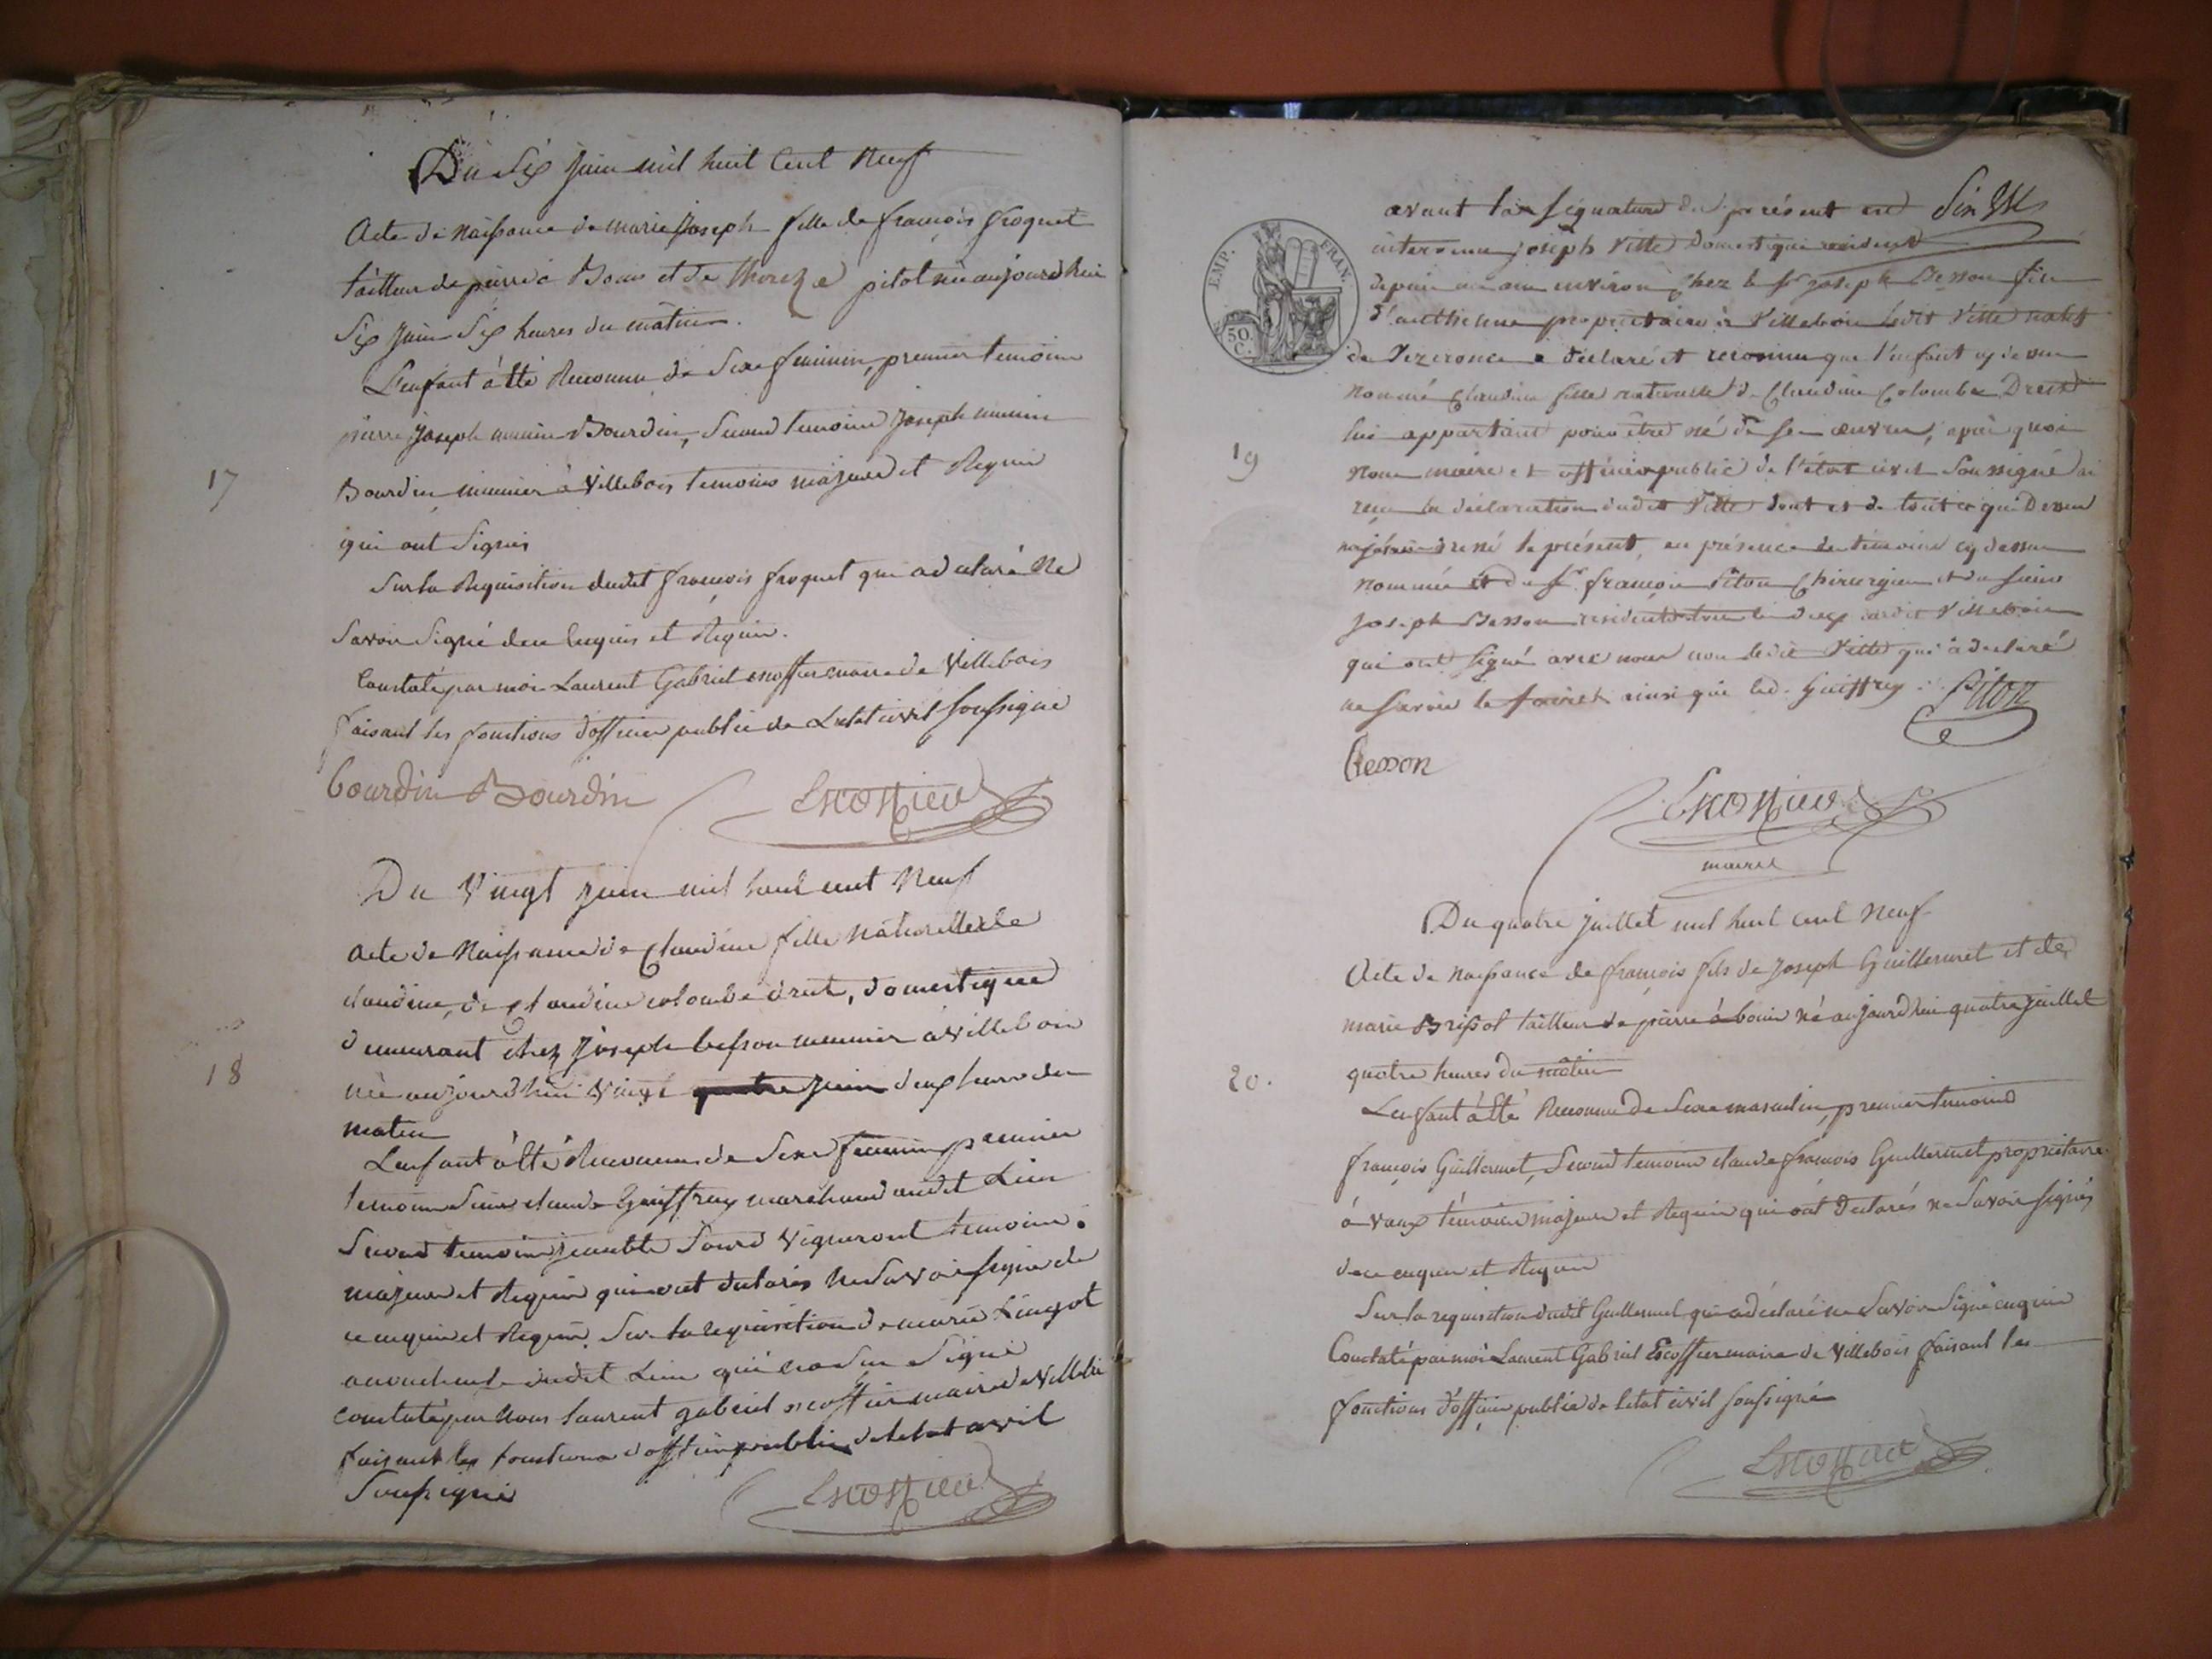 Du Six Juin mil huit Cent Neuf
Acte de Naissance de marie Joseph fille de françois froquet
tailleur de pierre à Bouis et de pitol née aujourd'hui
Six Juin Six heures du matin.
L'enfant à été Reconnu de Sexe feminin, premier temoin
pierre Joseph munier Bourdin, Second temoin Joseph munier
17
Bourdin munier à Villebois temoins majeurs et Requis
qui ont Signés
Sur la Requisition dudit françois froquet qui a déclaré Ne
Savoir Signé de ce Enquis et Requis.
Constaté par moi Laurent Gabriel escoffier maire de Villebois
faisant les fonctions d'officier public de Letat civil soussigné
Bourdin Bourdin Escoffier
Du Vingt Juin mil huit cent Neuf
Acte de Naissance de Claudine fille Naturelle de
claudine, de claudine colombe dreut, domestique
demeurant chez Joseph besson meunier à villebois
18
née aujourd'hui Vingt quatre juin deux heures du
matin
L'enfant à été Reconnu de Sexe feminin premier
temoin Sieur claude Geuffray marchand audit Lieu
Second temoin Vigneront temoins
majeurs et Requis qui ont declarés Ne Savoir signé de
ce enquis et Requis. Sur la requisition de marie Lingot
acoucheuse dudit Lieu Signé
constaté par Nous laurent gabriel escoffier maire de Villebois
faisant les fonctions d'officier public de letat civil
Soussigné
Escoffier
EMP. FRAN.
50 C.
avant la signature du présent est
intervenu joseph Vitte Domestique résident
depuis un an environ chez le Sr joseph Besson feu
propriétaire à Villebois ledit Vitte natif
de Vezeronce a déclaré et reconnu que l'enfant cy dessus
nommé Claudine fille naturelle de Claudine Colombe Dreut
lui appartient pour être né de ses œuvres, après quoi
19
Nous maire et officier public de l'état civil Soussigné ai
reçu la déclaration dudit Vitte dont et de tout ce que Dessus
dressé le présent, en présence des témoins cy dessus
nommés et du Sr françois Piton Chirurgien et du sieur
Joseph Besson résidents tous les deux audit Villebois
qui ont signé avec nous non ledit Vitte qui à déclaré
ne savoir le faire ainsi que led. Guiffrey Piton
Besson
Escoffier
maire
Du quatre Juillet mil huit cent Neuf
Acte de Naissance de françois fils de Joseph Guillermet et de
marie Brissot tailleur de pierre à bouis né aujourd'hui quatre juillet
20.
quatre heures du matin
L'enfant à été Reconnu de Sexe masculin, premier temoins
françois Guillermet, Second temoin claude françois Guillermet propriétaire
à vaux temoins majeurs et Requis qui ont declarés ne Savoir signés
de ce enquis et Requis
Sur la requisition dudit Guillermet qui a déclaré ne Savoir Signé enquis
Constaté par moi Laurent Gabriel Escoffier maire de Villebois faisant les
fonctions d'officier public de letat civil soussigné
Escoffier